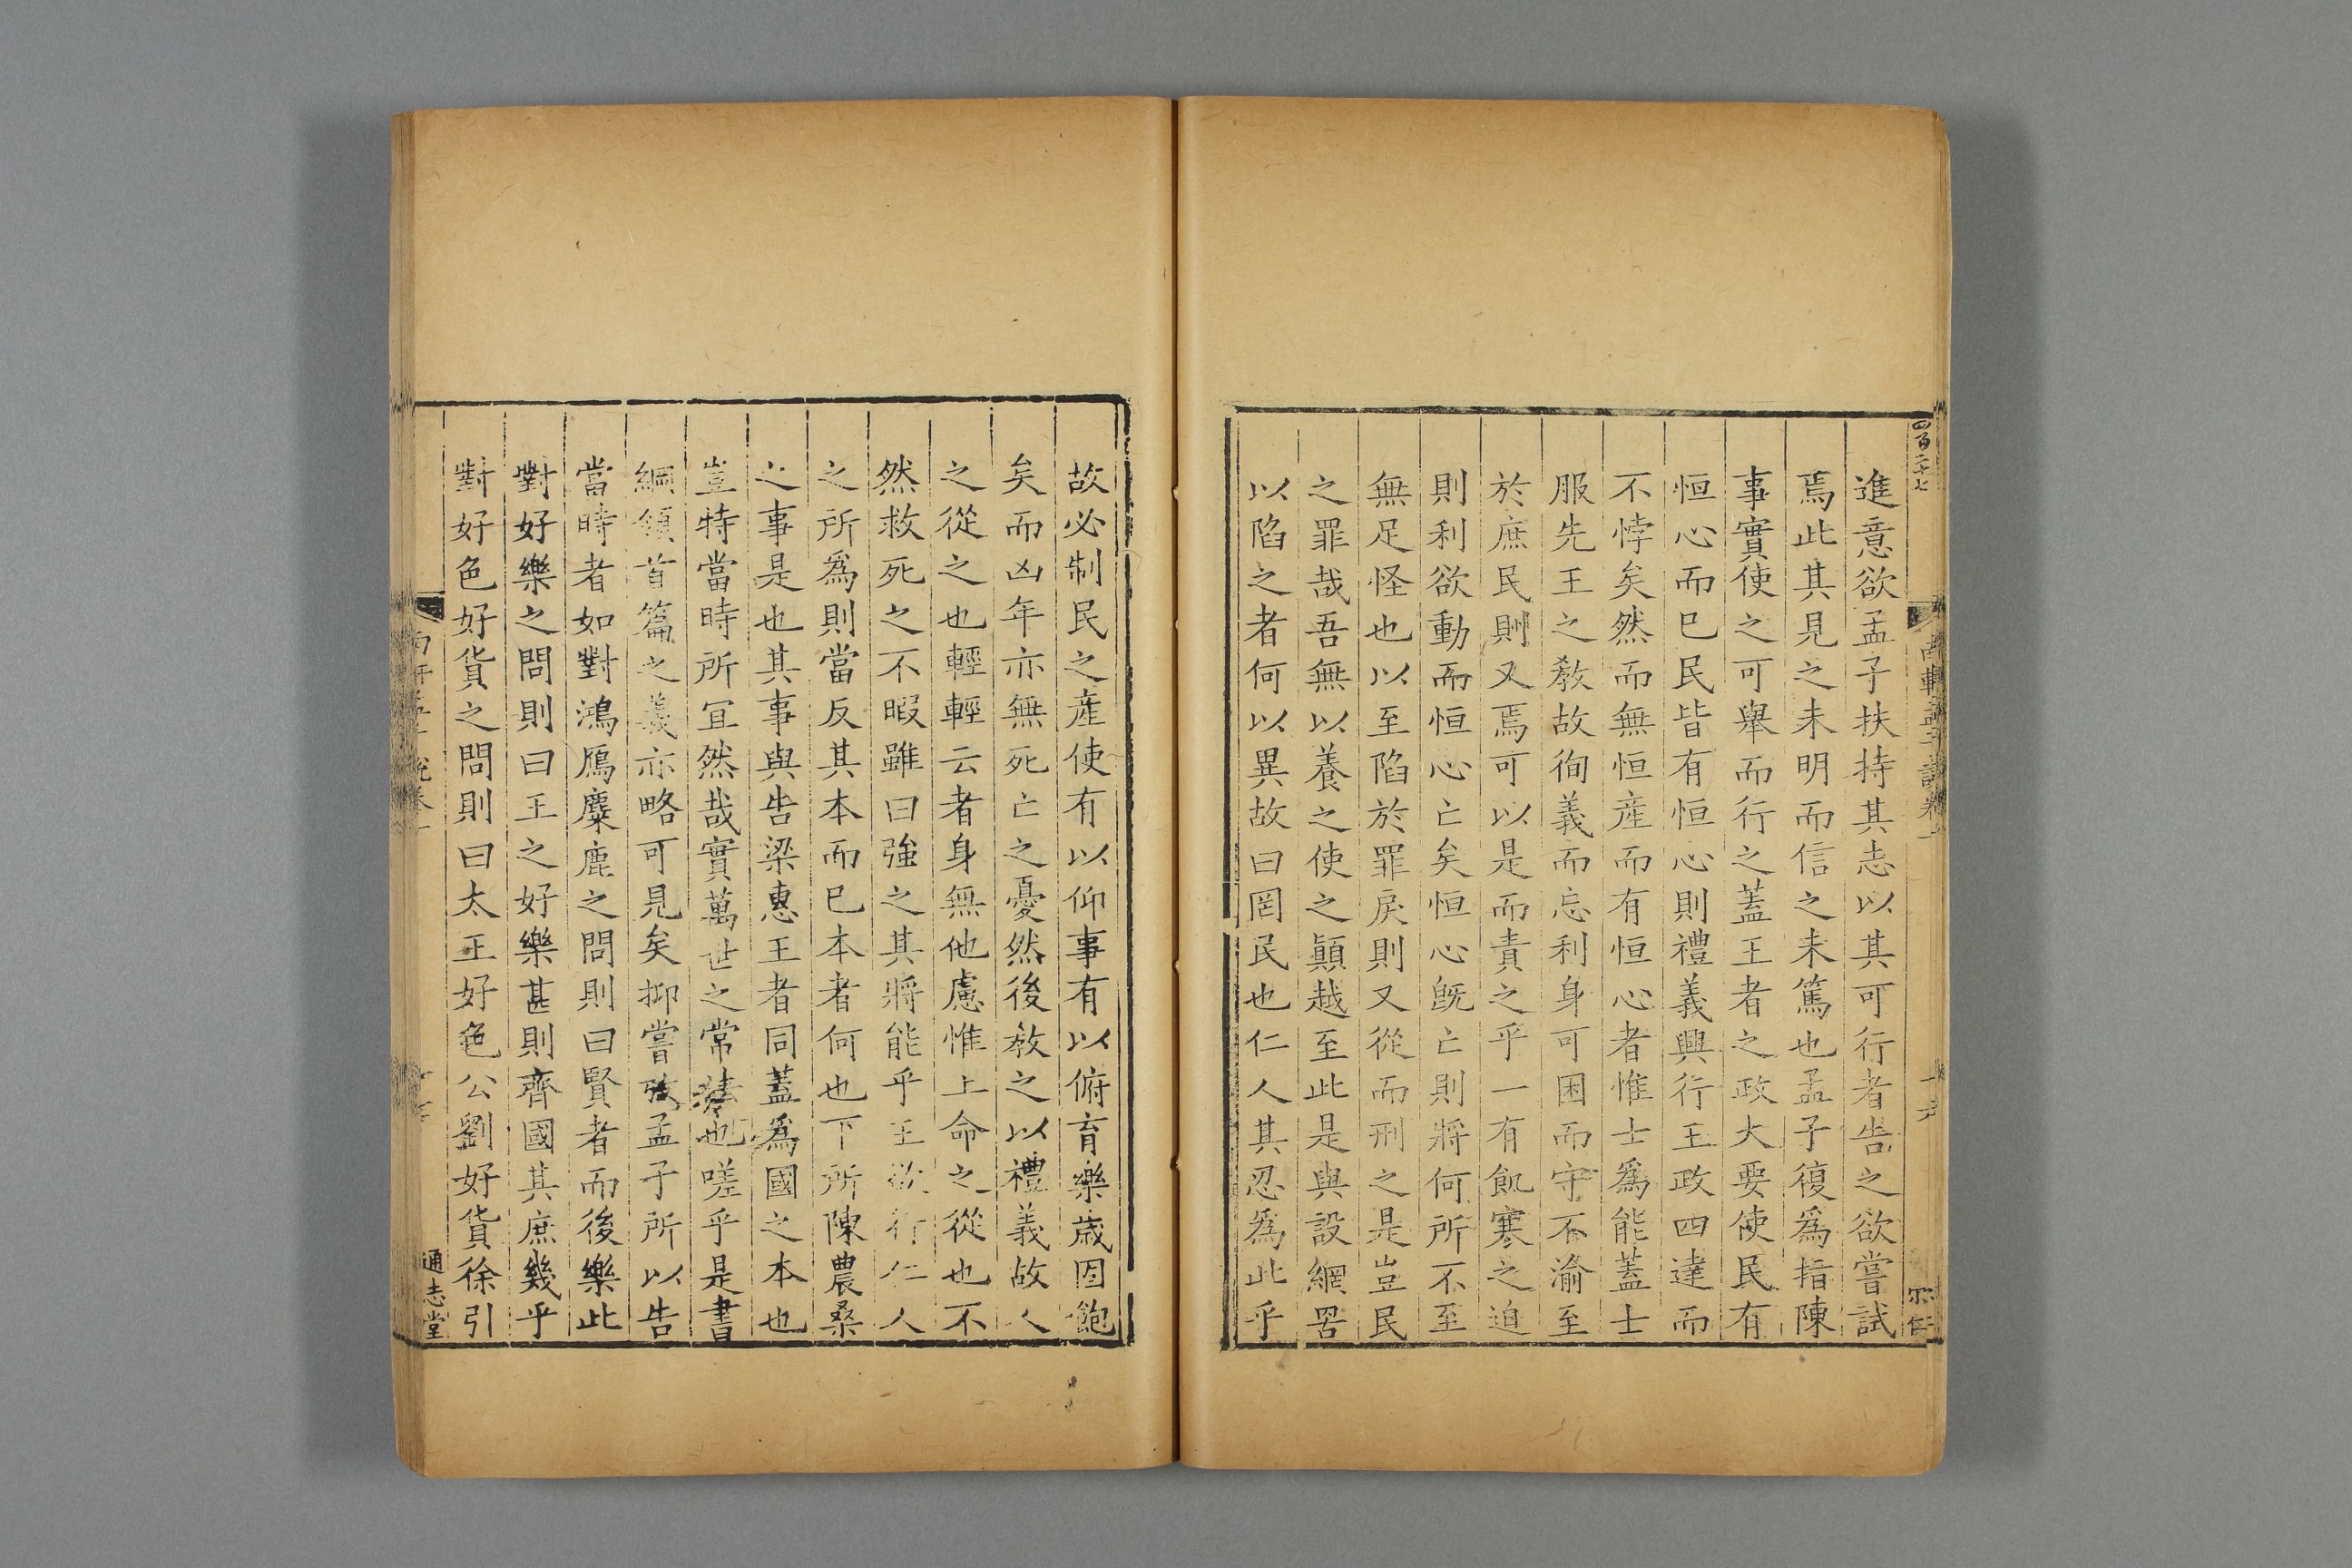 四百二十七
南軒孟子說卷一
進意欲孟子扶持其志以其可行者告之欲嘗試
焉此其見之未明而信之未篤也孟子復爲指陳
事實使之可舉而行之蓋王者之政大要使民有
恒心而已民皆有恒心則禮義興行王政四達而
不悖矣然而無恒産而有恒心者惟士爲能蓋士
服先王之教故徇義而忘利身可困而守不渝至
於庶民則又焉可以是而責之乎一有飢寒之迫
則利欲動而恒心亡矣恒心旣亡則將何所不至
無足怪也以至陷於罪戾則又從而刑之是豈民
之罪哉吾無以養之使之顚越至此是與設網罟
以陷之者何以異故曰罔民也仁人其忍爲此乎
故必制民之産使有以仰事有以俯育樂歲固飽
矣而凶年亦無死亡之憂然後教之以禮義故人
之從之也輕輕云者身無他慮惟上命之從也不
然救死之不暇雖曰強之其將能乎王欲行仁人
之所爲則當反其本而已本者何也下所陳農桑
之事是也其事與告梁惠王者同蓋爲國之本也
豈特當時所宜然哉實萬世之常也嗟乎是書
綱領首篇之義亦略可見矣抑嘗攷孟子所以告
當時者如對鴻鴈麋鹿之問則曰賢者而後樂此
對好樂之問則曰王之好樂甚則齊國其庶幾乎
對好色好貨之問則曰太王好色公劉好貨徐引
通志堂